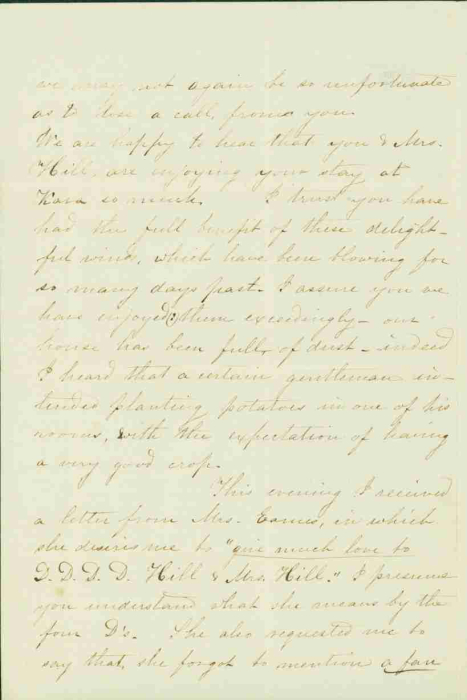 we may not again be so unfortunate
as to lose a call from you.
We are happy to hear that you & Mrs.
Hill, are enjoying your stay at
so much. I trust you have
had the full benefit of these delight-
ful winds, which have been blowing for
so many days past. I assure you we
have enjoyed them exceedingly - our
house has been full, of dust - indeed
I heard that a certain gentleman in-
tended planting potatoes in one of his
rooms, with the expectation of having
a very good crop.
This evening I received
a letter from Mrs. Eames, in which
she desires me to "give much love to
D. D. D. D. Hill & Mrs. Hill." I presume
you understand what she means by the
four D's. She also requested me to
say that she forgot to mention a fan